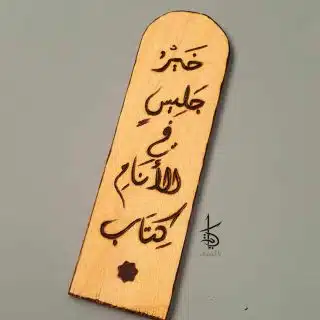 خَيْرُ
جَلِيسٍ
فِي
الأَنَامِ
كِتَاب